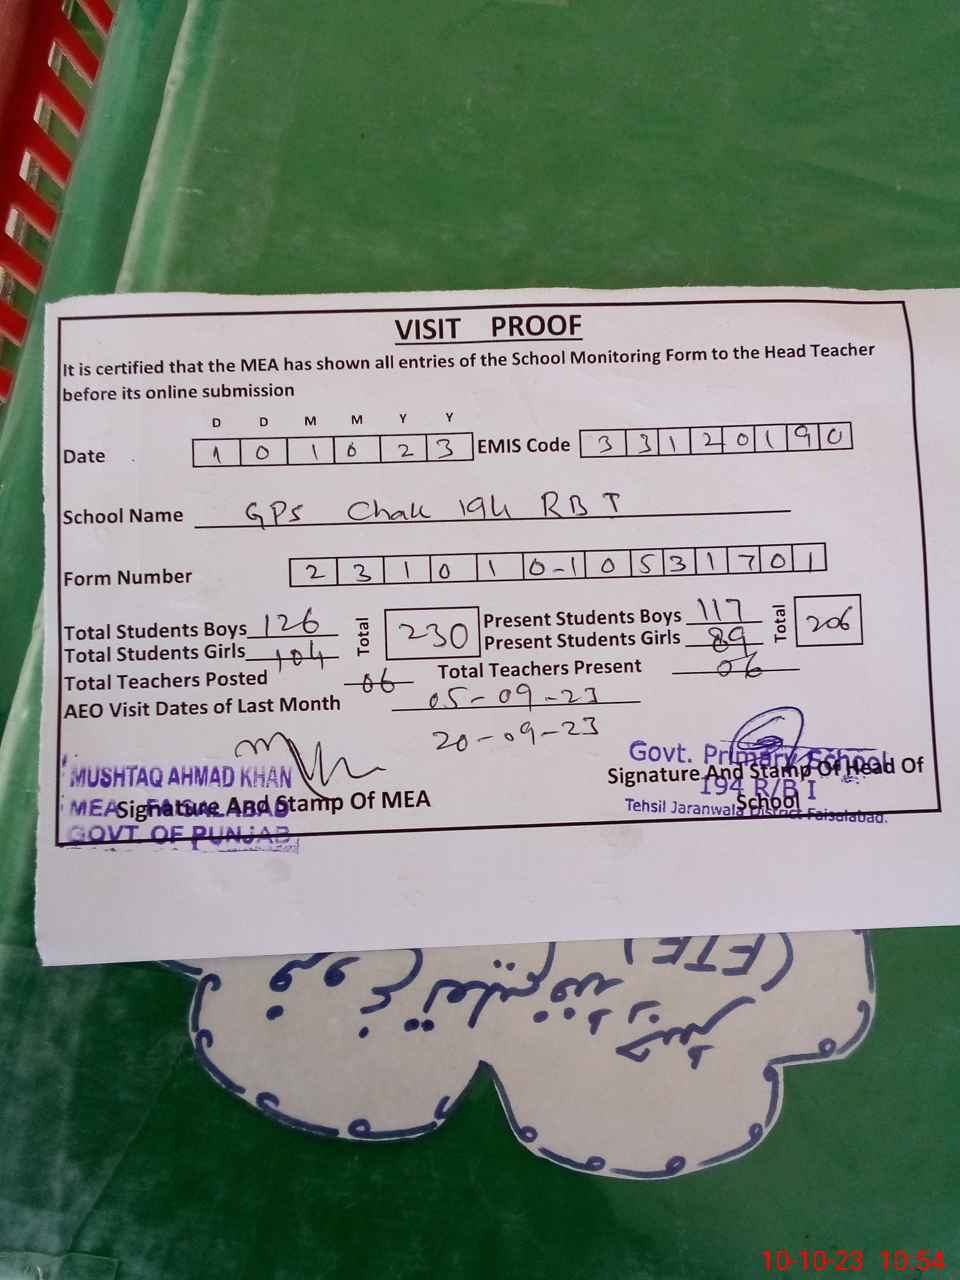 VISIT PROOF
It is certified that the MEA has shown all entries of the School Monitoring Form to the Head Teacher
before its online submission
D D M M Y Y
Date 1 0 1 0 2 3 EMIS Code 3 3 1 2 0 1 9 0
School Name GPS Chak 194 RB I
Form Number 2 3 1 0 1 0-1 0 5 3 1 7 0 1
Total Students Boys 126 Total 230 Present Students Boys 117 Total 206
Total Students Girls 104 Present Students Girls 89
Total Teachers Posted 06 Total Teachers Present 06
AEO Visit Dates of Last Month 05-09-23
20-09-23
MUSHTAQ AHMAD KHAN
MEA FAISALABAD
GOVT. OF PUNJAB
Signature And Stamp Of MEA
Govt. Primary School
194 R/B I
Tehsil Jaranwala District Faisalabad.
Signature And Stamp Of Head Of
School
(ETE)
10-10-23 10:54